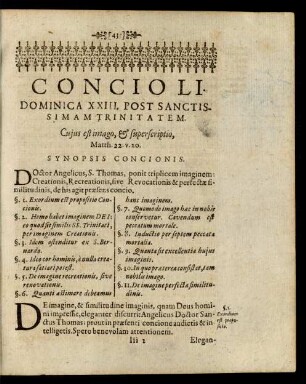 [41]
CONCIO LI.
DOMINICA XXIII, POST SANCTIS-
SIMAM TRINITATEM.
Cujus est imago, & superscriptio,
Matth. 22. v. 20.
SYNOPSIS CONCIONIS.
DOctor Angelicus, S. Thomas, ponit triplicem imaginem:
Creationis, Recreationis, sive Revocationis & perfectæ si-
militudinis, de his agit præsens concio.
§. 1. Exordium est propositio Con-
cionis.
§. 2. Homo habet imaginem DEI,
eo quod sit similis SS. Trinitati,
per imaginem Creationis.
§. 3. Idem ostenditur ex S. Ber-
nardo.
§. 4. Ideo cor hominis, à nulla crea-
tura satiari potest.
§. 5. De imagine recreationis, sive
renovationis.
§. 6. Quanti æstimare debeamus
hanc imaginem.
§. 7. Quomodo imago hac in nobis
conservetur. Cavendum est
peccatum mortale.
§. 8. Inducit per septem peccata
mortalia.
§. 9. Quanta sit excellentia hujus
imaginis.
§. 10. In quo præterea consistat, tam
nobilis imago.
§. 11. De imagine perfectæ similitu-
dinis.
DE imagine, & similitudine imaginis, quam Deus homi-
ni impressit, eleganter discurrit Angelicus Doctor San-
ctus Thomas: prout in præsenti concione audietis & in-
telligetis. Spero benevolam attentionem.
§. 1.
Exordium
est propo-
sitio
Iii 1
Elegan-